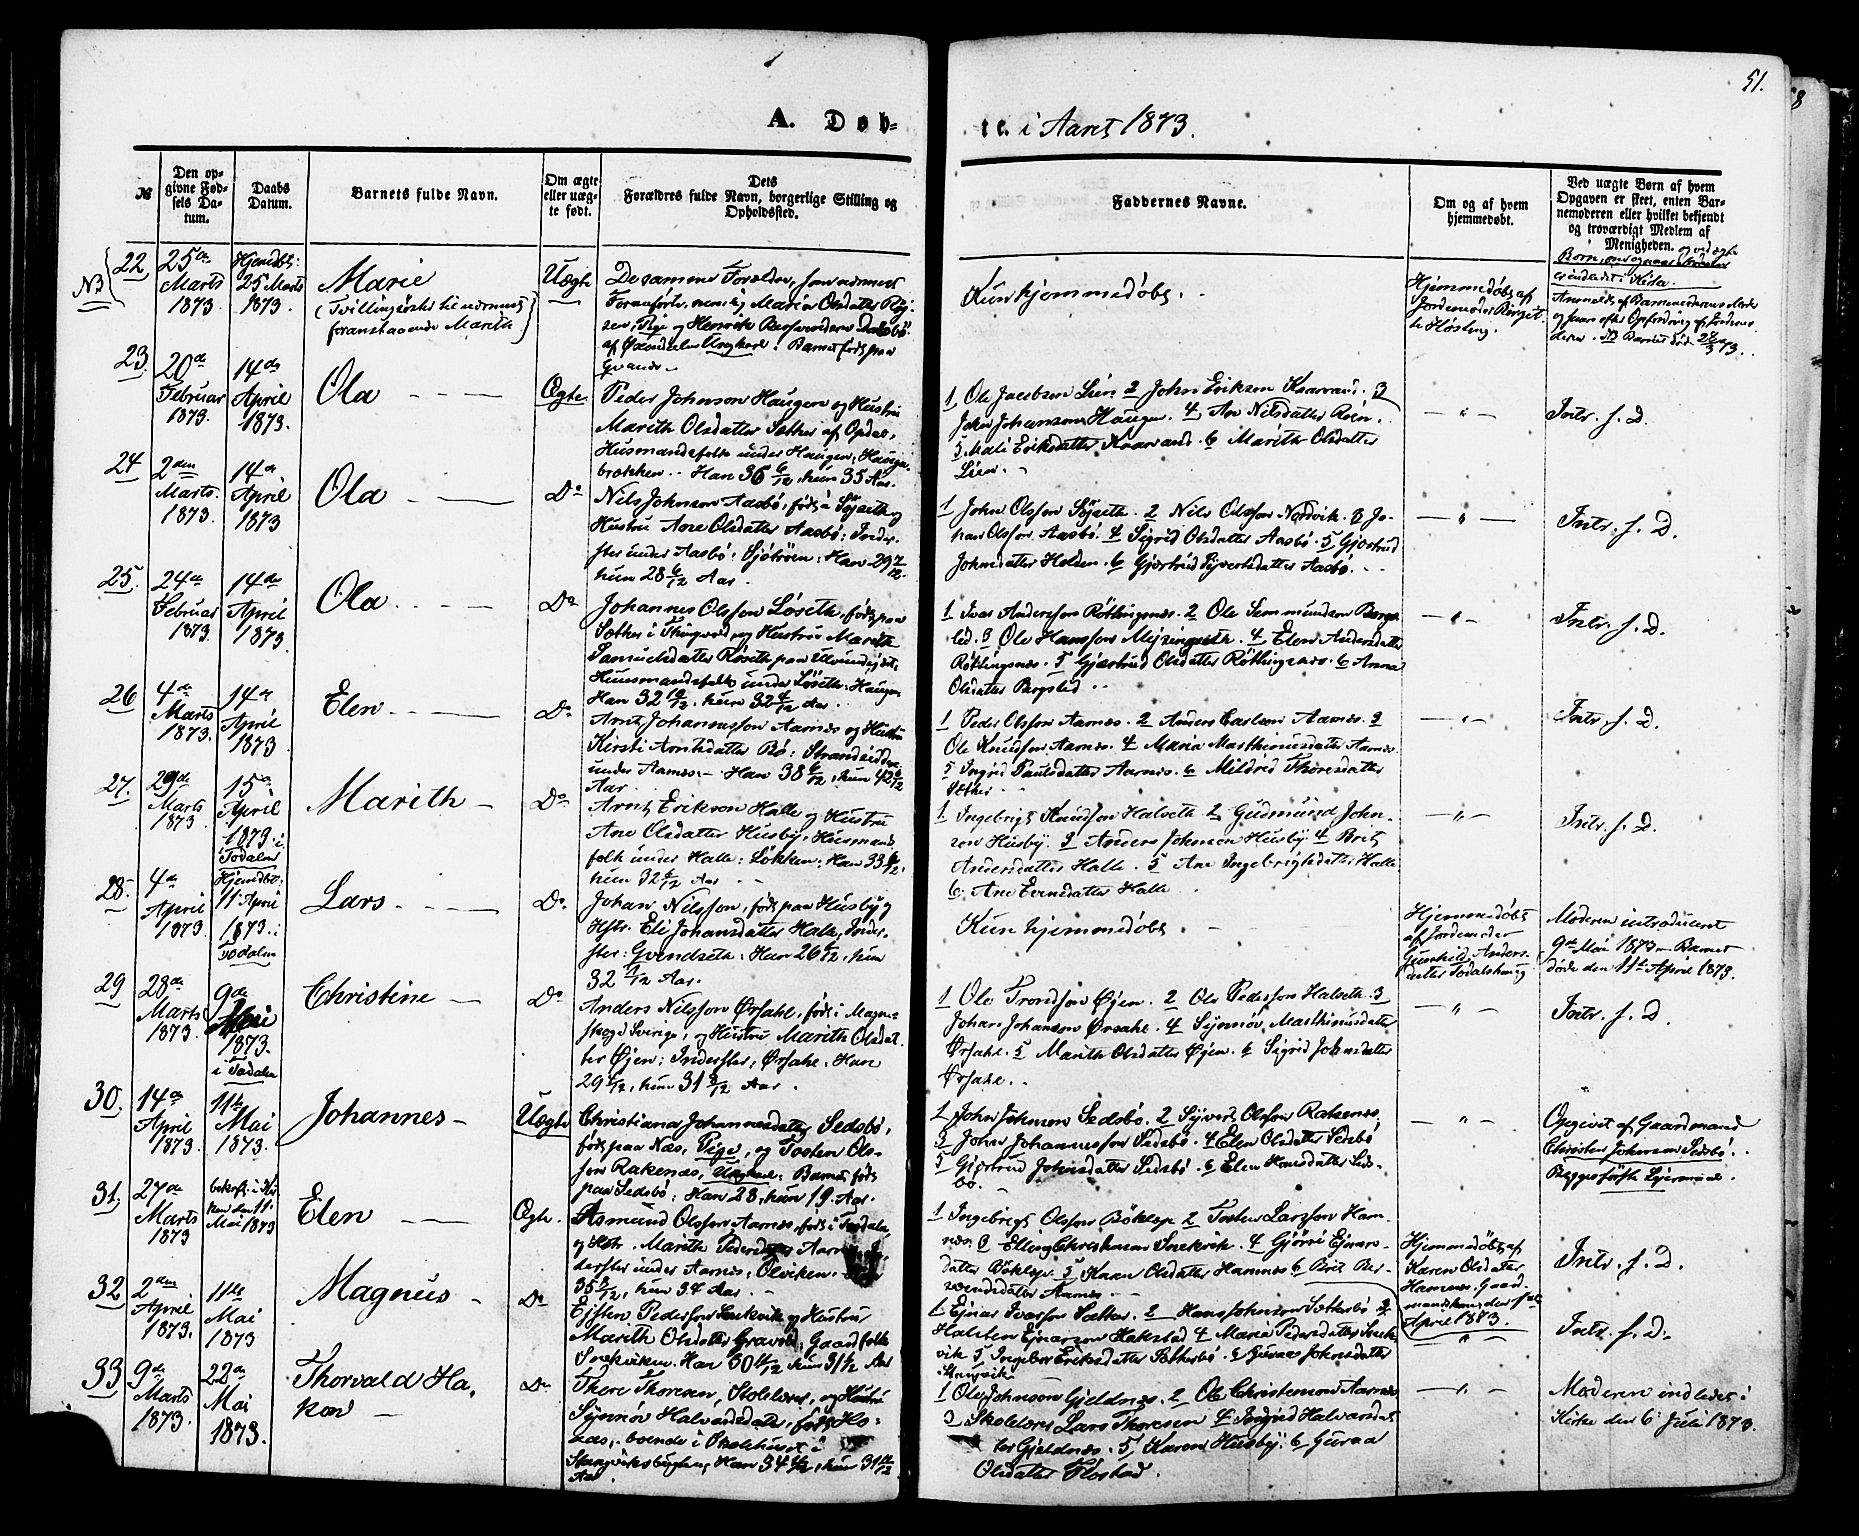 51.
A. Døb-
te. i Aaret 1873.
№
Den op-
givne Fød-
sels Da-
tum.
Daabs
Datum.
Barnets fulde Navn.
Om ægte
eller uæg-
te født.
Dets
Forældres fulde Navn, borgerlige Stilling og
Opholdssted.
Faddernes Navne.
Om og af hvem
hjemmedøbt.
Ved uægte Børn af hvem
Opgaven er skeet, enten Bar-
nemoderen eller hvilket bekjendt
og troværdigt Medlem af
Menigheden.
22
25de
Marts
1873
25 Marts
1873.
Marie
foranstaaende Marith
Uægte
De samme Forældre, som nærmest
Kun hjemmedøbt.
Hjemmedøbt af
23.
20de
Februar
1873.
14de
April
1873.
Ola
Ægte
Peder Johnson Haugen og Hustru
Marith Olsdatter Sæther af Opdal,
Husmandsfolk under Haugen, Hauge-
brækken. Han 36 6/12, hun 35 Aar.
1 Ole Jacobsen Lien 2 John Eriksen Kvarvand. 3
John Johansson Haugen. 4 Ane Nilsdatter Roen.
5 Mali Eriksdatter Kvarvand. 6 Marith Olsdatter
Lien.
— " —
Intr. f. D.
24
2den
Marts.
1873.
14de
April
1873
Ola
Do
Nils Johnson Aasbö, født i
Hustru Ane Olsdatter Aasbö: Inder-
ster under Aasbö: Han 29 7/12.
hun 28 6/12 Aar.
1 John Olsson 2 Nils Olsson Nordvik. 3 Jo-
han Olsson Aasbö. 4 Sigrid Olsdatter Aasbö. 5 Gjertrud
Johnsdatter Holden. 6 Gjertrud Sivertsdatter Aasbö.
— " —
Intr. f. D.
25.
24de
Februar
1873.
14de
April
1873.
Ola
Do
Johannes Olsson Løseth, født paa
Sæther i Thingvold, og Hustru Marith
Samuelsdatter Røseth paa
Huusmandsfolk under Løseth: Haugen
Han 32 10/12, hun 32 4/12 Aar.
1 Ivar Anderssen Röttingsnæs. 2 Ole Semmundsen Bergs-
lid. 3 Ole Hansson 4 Elen Andersdatter
Röttingsnæs. 5 Gjertrud Olsdatter Röttingsnæs. 6 Anna
Olsdatter
— " —
Intr. f. D.
26
4de
Marts
1873.
14de
April
1873
Elen
Do
Arnt Johannesson Aarnes og Hustru
Kirsti Arntsdatter Bö: Strandsiddere
under Aarnes. — Han 38 6/12, hun 42 6/12
Aar.
1 Peder Olsson Aarnes. 2 Anders Aarnes. 3
Ole Knudson Aarnes. 4 Maria Mathiasdatter Aarnes.
5 Ingrid Paulsdatter Aarnes. 6 Mildrid Thoresdatter
Sæther.
— " —
Intr. f. D.
27.
29de
Marts
1873.
15de
April
1873 i
Todalen
Marith
Do
Arnt Erikson Halle og Hustru
Ane Olsdatter Husby, Husmands-
folk under Halle: Løkken: Han 33 6/12.
hun 32 6/12 Aar.
1 Ingebrigt Knudson Halseth 2 Gudmund John-
son Husby. 3 Anders Johnson Husby. 4 Brit
Andersdatter Halle. 5 Ane Ingebrigtsdatter Halle
6. Ane Halle
— " —
Intr. f. D.
28.
4de
April
1873.
Hjemdbt:
11 April
1873.
Todalen
Lars
Do
Johan Nilsson, født paa Husby og
Hstr. Eli Johansdatter Halle, Inder-
ster: Gvendset: Han 26 6/12, hun
32 7/12 Aar.
Kun hjemmedøbt.
Hjemmedøbt
af Jordemoder
Gunhild Anders-
datter Todalshaug
Moderen introduceret
9de Mai 1873 — Barnet
døde den 11te April 1873.
29
28de
Marts
1873.
9de
Mai
1873.
i Todalen
Christine
Do
Anders Nilsson Ørsahl, født i Magne-
skog i Sverige, og Hustru Marith Olsdat-
ter Øyen: Inderster, Ørsahl. Han
29 6/12, hun 31 9/12 Aar.
1 Ole Trondson Øjen. 2 Ole Pedersson Halseth. 3
Johan Johanson Ørsahl. 4 Synnøv Mathiasdatter
Ørsahl. 5 Marith Olsdatter Øjen. 6 Sigrid Johnsdatter
Ørsahl.
— " —
Intr. f. D.
30.
14de
April
1873.
11te
Mai
1873.
Johannes
Uægte
Christiana Johannesdatter Sedsbö,
født paa Næs, Pige, og Tosten Ols-
son Rakenæs, Ungkarl: Barnet født
paa Sedsbö: Han 23, hun 19 Aar.
1 John Johnson Sedsbö. 2 Syvert Olsson Rakenæs.
3 Johan Johannesson Sedsbö. 4 Elen Olsdatter Sedsbö
5 Gjertrud Johnsdatter Sedsbö. 6 Elen Hansdatter Seds-
bö.
— " —
Opgivet af Gaardmand
Christen Johnson Sedsbö.
Begges første Leiermaal.
31.
27de
Marts
1873
bekræft. i Kir-
ken den 11.
Mai 1873
Elen
Ægte.
Asmund Olsson Aarnes, født i Todalen,
og Hstr. Marith Pedersdatter Aarnes
35 8/12, hun 34 Aar.
1 Ingebrigt Olsson Böklep 2 Tosten Larsson Ham-
nes. 3 Elling Christensen Snekvik. 4 Gjøri Ejnars-
datter Böklep. 5 Karen Olsdatter Hamnes 6 Brit Ber-
svendsdatter Aarnes
Hjemmedøbt af
Karen Olsdatter
Hamnes, Gaard-
mandskone
April 1873.
Intr. f. D.
32
2den
April
1873.
11te
Mai
1873
Magnus
Do
Eisten Pedersson Snekvik og Hustru
Marith Olsdatter Gravvold, Gaardfolk
Snekviken. Han 30 11/12 hun 31 1/2 Aar
1 Ejnar Ivarson Sæther. 2 Hans Johnson Sæterbö 3
Halsten Ejnarson Hakstad 4 Maria Pedersdatter Snek-
vik 5 Ingebor Eriksdatter Sæterbö. 6 Guraa Johnsdatter
— " —
Intr. f. D.
33
9de
Marts
1873
22de
Mai
1873.
Thorvald Ha-
kon
Do
Thore Thoresen, Skolelærer, og Hustru
Synnøv Halvardsdatter, født
boende i Skolehuset i
Stangviksbugten, Han 34 4/12, hun 31 11/12
Aar
1 Ole Johnson Gjeldnæs. 2 Ole Christenson Aarnes
3 Skolelærer Lars Thoresen 4 Ingrid Halvardsdat-
ter Gjeldnæs. 5 Karen Husby. 6 Guraa
Olsdatter Flöstad.
— " —
Moderen indledet i
Kirke den 6 Juli 1873.